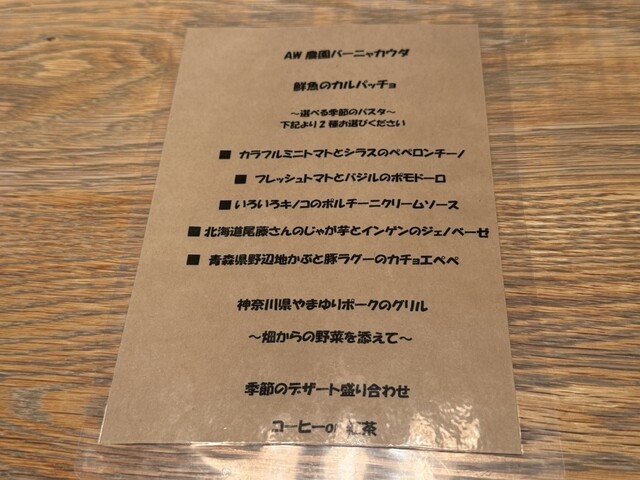 AW 農園バーニャカウダ
鮮魚のカルパッチョ
～選べる季節のパスタ～
下記より2種お選びください
■ カラフルミニトマトとシラスのペペロンチーノ
■ フレッシュトマトとバジルのポモドーロ
■ いろいろキノコのポルチーニクリームソース
■ 北海道尾藤さんのじゃが芋とインゲンのジェノベーゼ
■ 青森県野辺地かぶと豚ラグーのカチョエペペ
神奈川県やまゆりポークのグリル
～畑からの野菜を添えて～
季節のデザート盛り合わせ
コーヒーor 紅茶